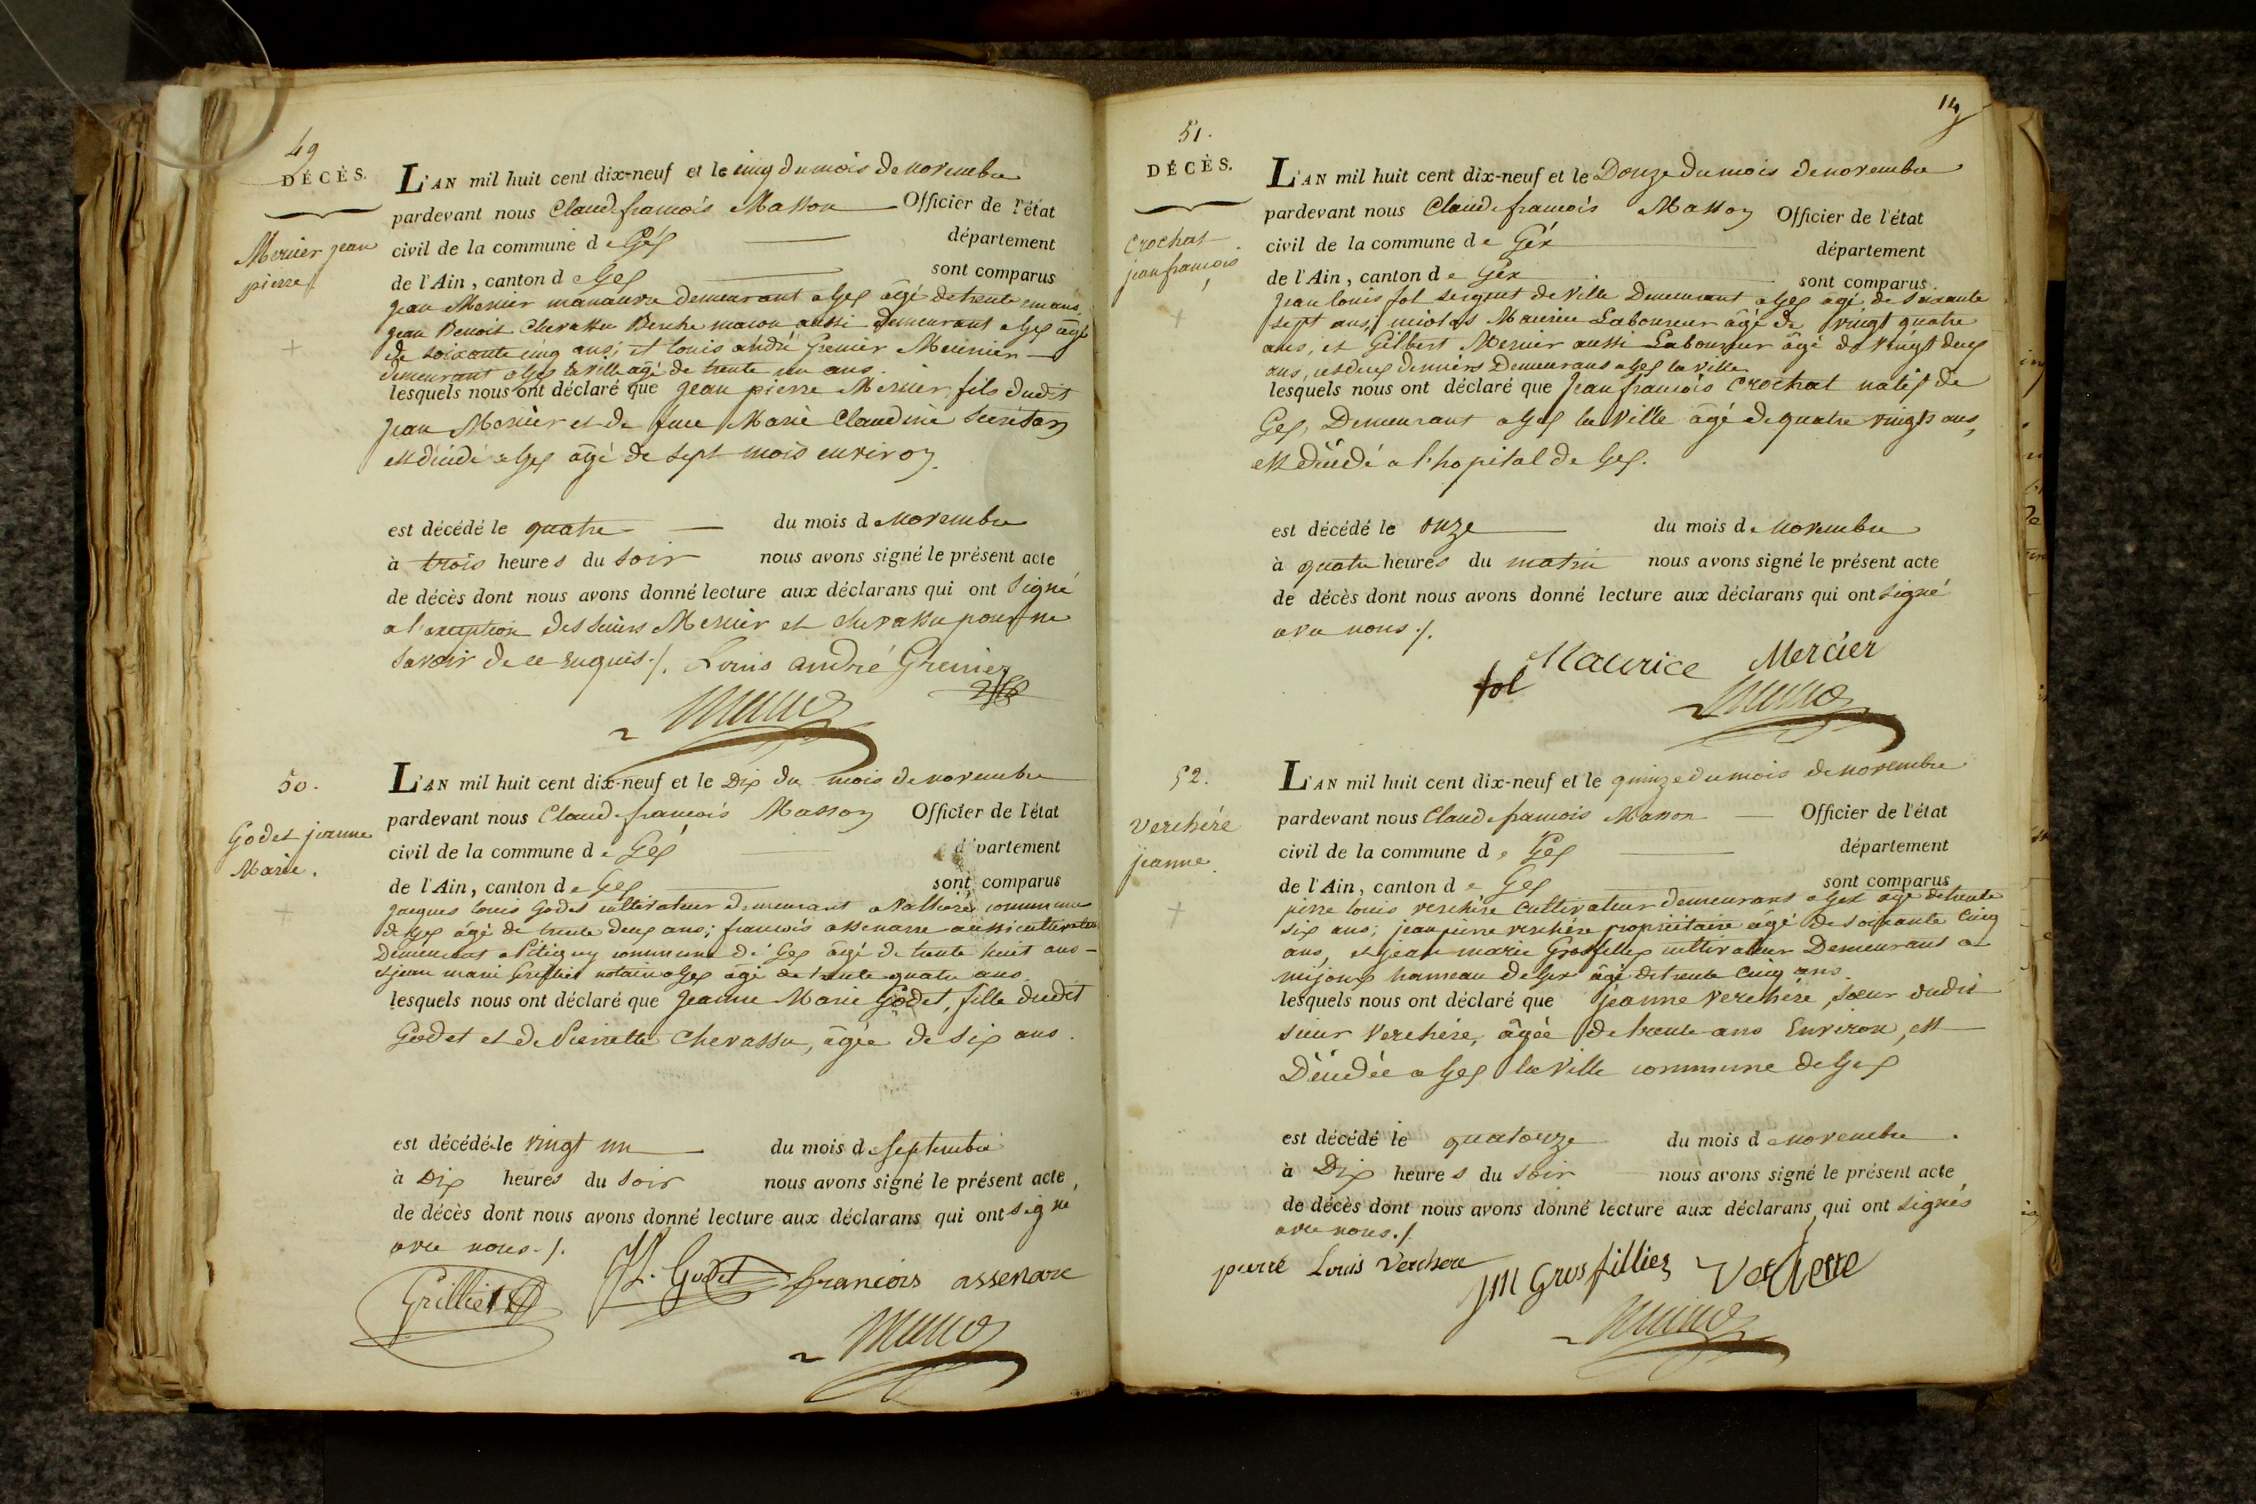 49
DÉCÈS.
Mercier jean
pierre
L'AN mil huit cent dix-neuf et le cinq du mois de novembre
pardevant nous Claude françois Masson Officier de l'état
civil de la commune de Gex département
de l'Ain, canton de Gex sont comparus
jean Mercier manœuvre demeurant a Gex âgé de trente un ans,
jean Benoit Chevassu Berche maçon aussi demeurant a Gex âgé
de soixante cinq ans; et louis andré Grenier Meunier
demeurant a Gex la ville âgé de trente un ans.
lesquels nous ont déclaré que jean pierre Mercier fils dudit
jean Mercier et de feue Marie Claudine Secretan
est décédé a Gex âgé de sept mois environ.
est décédé le quatre du mois de novembre
à trois heures du soir nous avons signé le présent acte
de décès dont nous avons donné lecture aux déclarans qui ont signé
a l'exception des sieurs Mercier et chevassu pour ne
savoir de ce enquis ./. Louis andré Grenier
50.
Godet jeanne
Marie.
L'AN mil huit cent dix-neuf et le Dix du mois de novembre
pardevant nous Claude françois Masson Officier de l'état
civil de la commune de Gex département
de l'Ain, canton de Gex sont comparus
jacques louis Godet cultivateur demeurant a commune
de Gex âgé de trente deux ans; françois assenare aussi cultivateur
Demeurant a Pitigny commune de Gex âgé de trente huit ans
et jean marie Grilliet notaire a Gex âgé de trente quatre ans
lesquels nous ont déclaré que jeanne Marie Godet, fille dudit
Godet et de Pierrette Chevassu, âgée de six ans.
est décédé le vingt un du mois de septembre
à Dix heures du soir nous avons signé le présent acte,
de décès dont nous avons donné lecture aux déclarans qui ont signé
avec nous ./.
Grilliet JL. Godet françois assenare
119
51.
DÉCÈS.
Crochat
jean françois
L'AN mil huit cent dix-neuf et le Douze du mois de novembre
pardevant nous Claude françois Masson Officier de l'état
civil de la commune de Géx département
de l'Ain, canton de Gex sont comparus
jean louis fol sergent de ville Demeurant a Gex âgé de soixante
sept ans, nicolas Maurice Laboureur âgé de vingt quatre
ans, et Gilbert Mercier aussi Laboureur âgé de vingt deux
ans, ces deux derniers Demeurans a Gex la ville
lesquels nous ont déclaré que jean françois Crochat natif de
Gex, Demeurant a Gex la Ville âgé de quatre vingts ans,
est décédé a l'hopital de Gex.
est décédé le onze du mois de novembre
à quatre heures du matin nous avons signé le présent acte
de décès dont nous avons donné lecture aux déclarans qui ont signé
avec nous ./.
fol Maurice Mercier
52.
Verchére
jeanne.
L'AN mil huit cent dix-neuf et le quinze du mois de novembre
pardevant nous Claude françois Masson Officier de l'état
civil de la commune de Gex département
de l'Ain, canton de Gex sont comparus
pierre louis verchère Cultivateur demeurans a Gex âgé de trente
six ans; jean pierre verchère propriétaire âgé de soixante cinq
ans, et jean marie Grosfillex cultivateur Demeurans a
mijoux hameau de Gex âgé de trente cinq ans.
lesquels nous ont déclaré que jeanne Verchére, sœur dudit
sieur Verchére, âgée de trente ans Environ, est
Décédée a Gex la Ville commune de Gex
est décédé le quatorze du mois de novembre.
à Dix heures du soir nous avons signé le présent acte
de décès dont nous avons donné lecture aux déclarans, qui ont signés
avec nous ./.
pierre Louis Verchere JM Grosfilliex Verchere